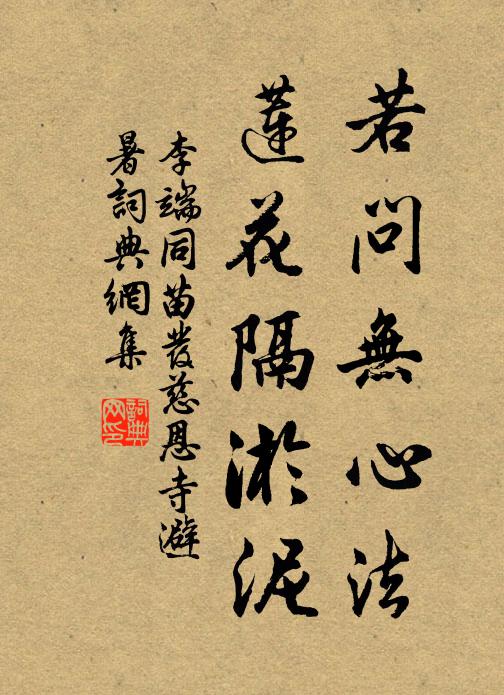 若問無心法
蓮花隔淤泥
李端同苗發慈恩寺避
暑詞典網集
詞典
网印